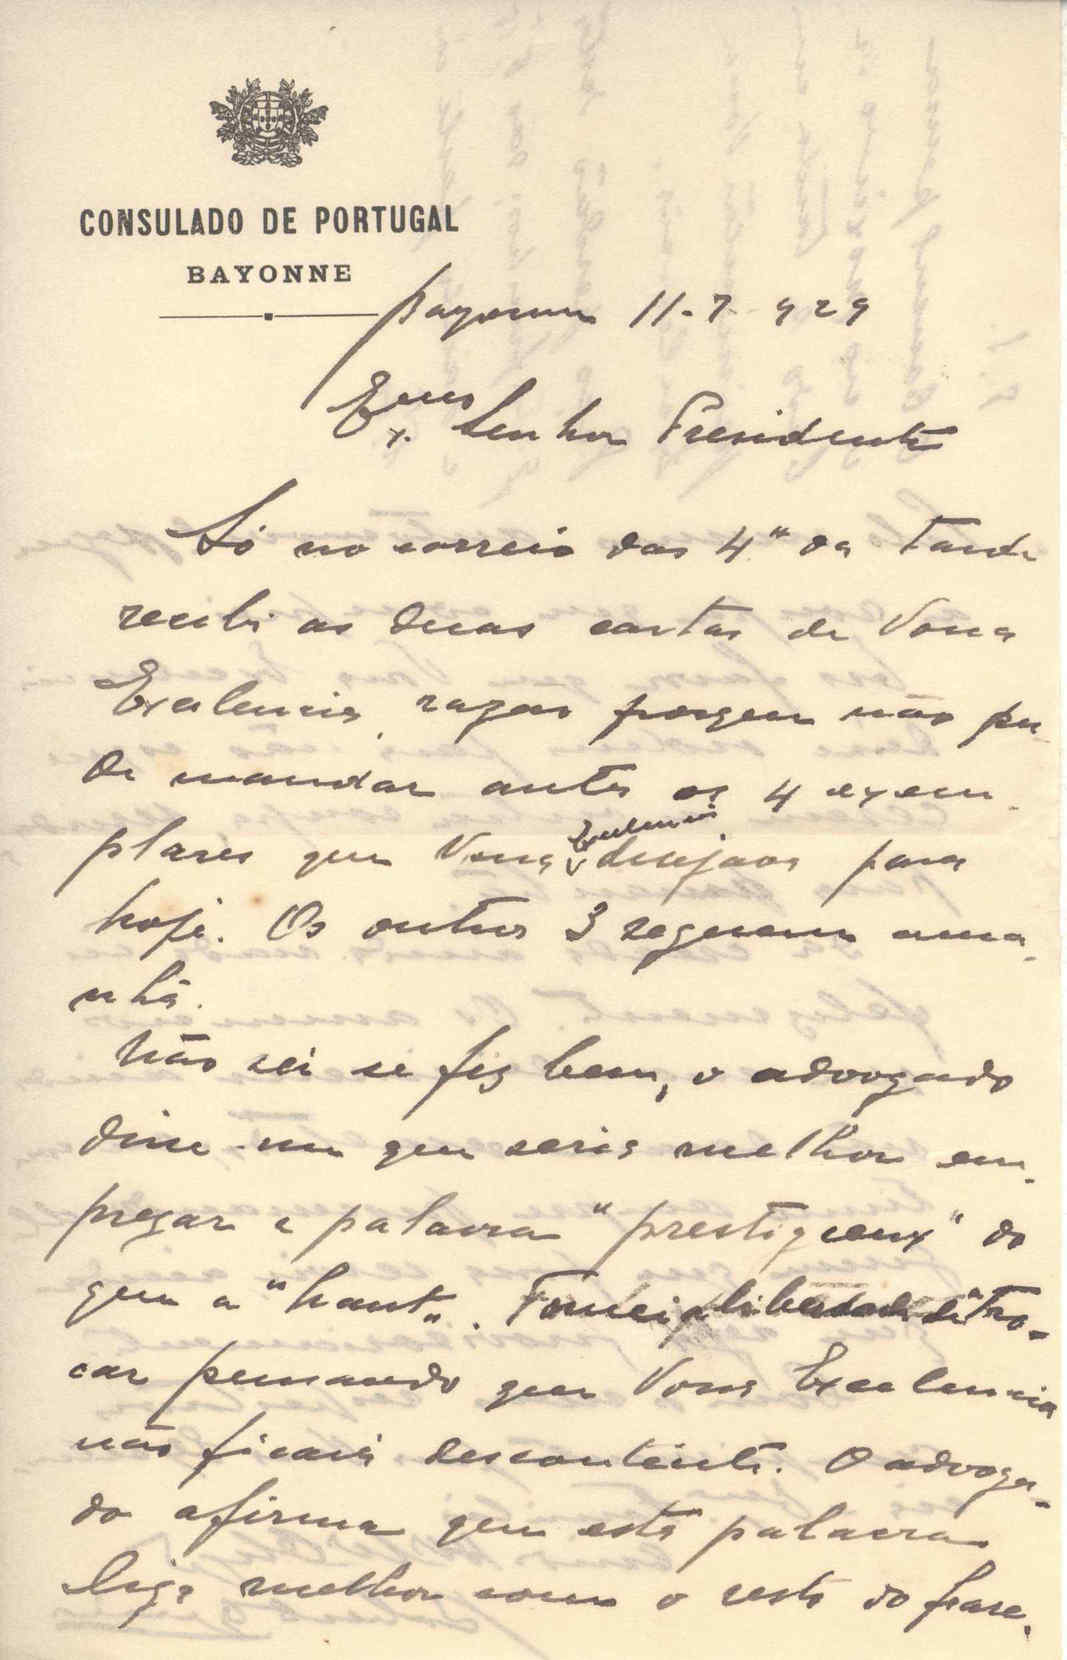 CONSULADO DE PORTUGAL
BAYONNE
Bayonne 11-7-929
Exmo Senhor Presidente
Só no correio das 4" da tarde
recebi as duas cartas de Vossa
Excelencia, razão porque não pu-
de mandar antes os 4 exem-
plares que Vossa Excelencia desejava para
hoje. Os outros 3 seguem ama-
nhã.
Não sei se fiz bem, o advogado
disse-me que seria melhor em-
pregar a palavra "prestigieux" do
que a "haut". Tomei a liberdade de tro-
car pensando que Vossa Excelencia
não ficaria descontente. O advoga-
do afirma que esta palavra
liga melhor com o resto da frase.